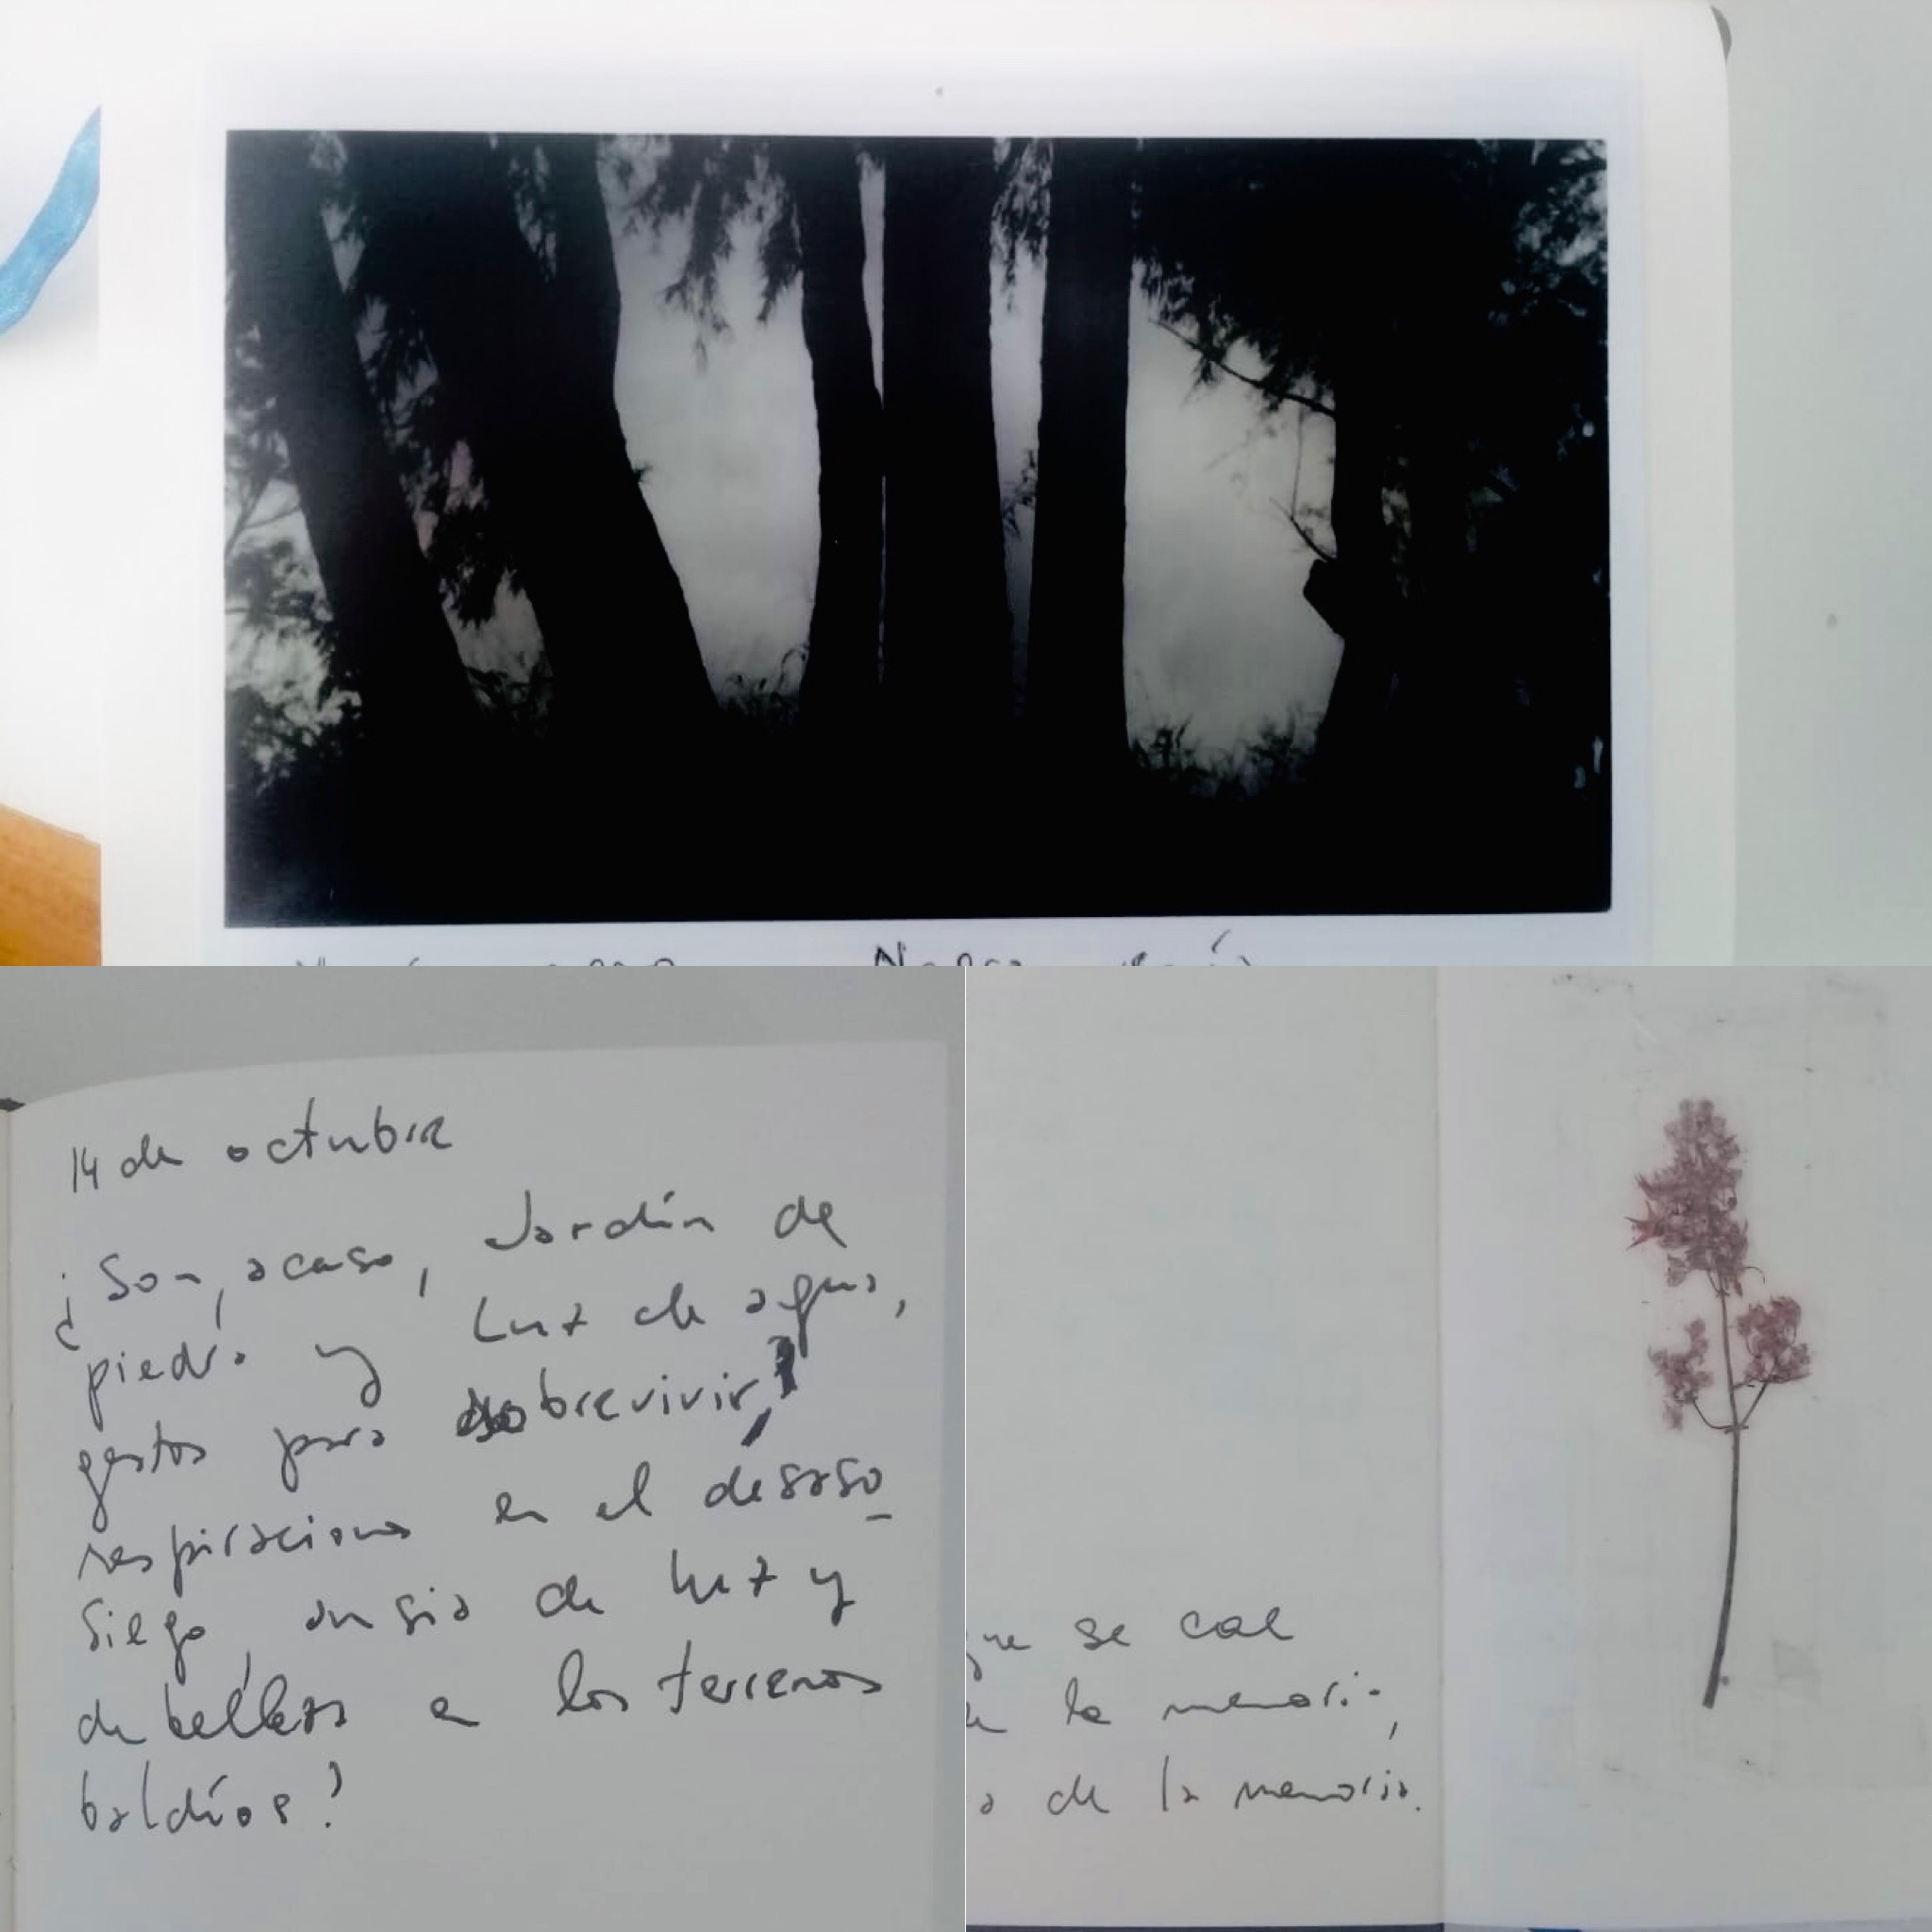 14 de octubre
¿Son, acaso, Jardín de
piedra y Luz de agua,
gestos para sobrevivir,
respiraciones en el desaso-
siego, ansia de luz y
de belleza en los terrenos
baldíos?
que se cae
de la memoria,
de la memoria.